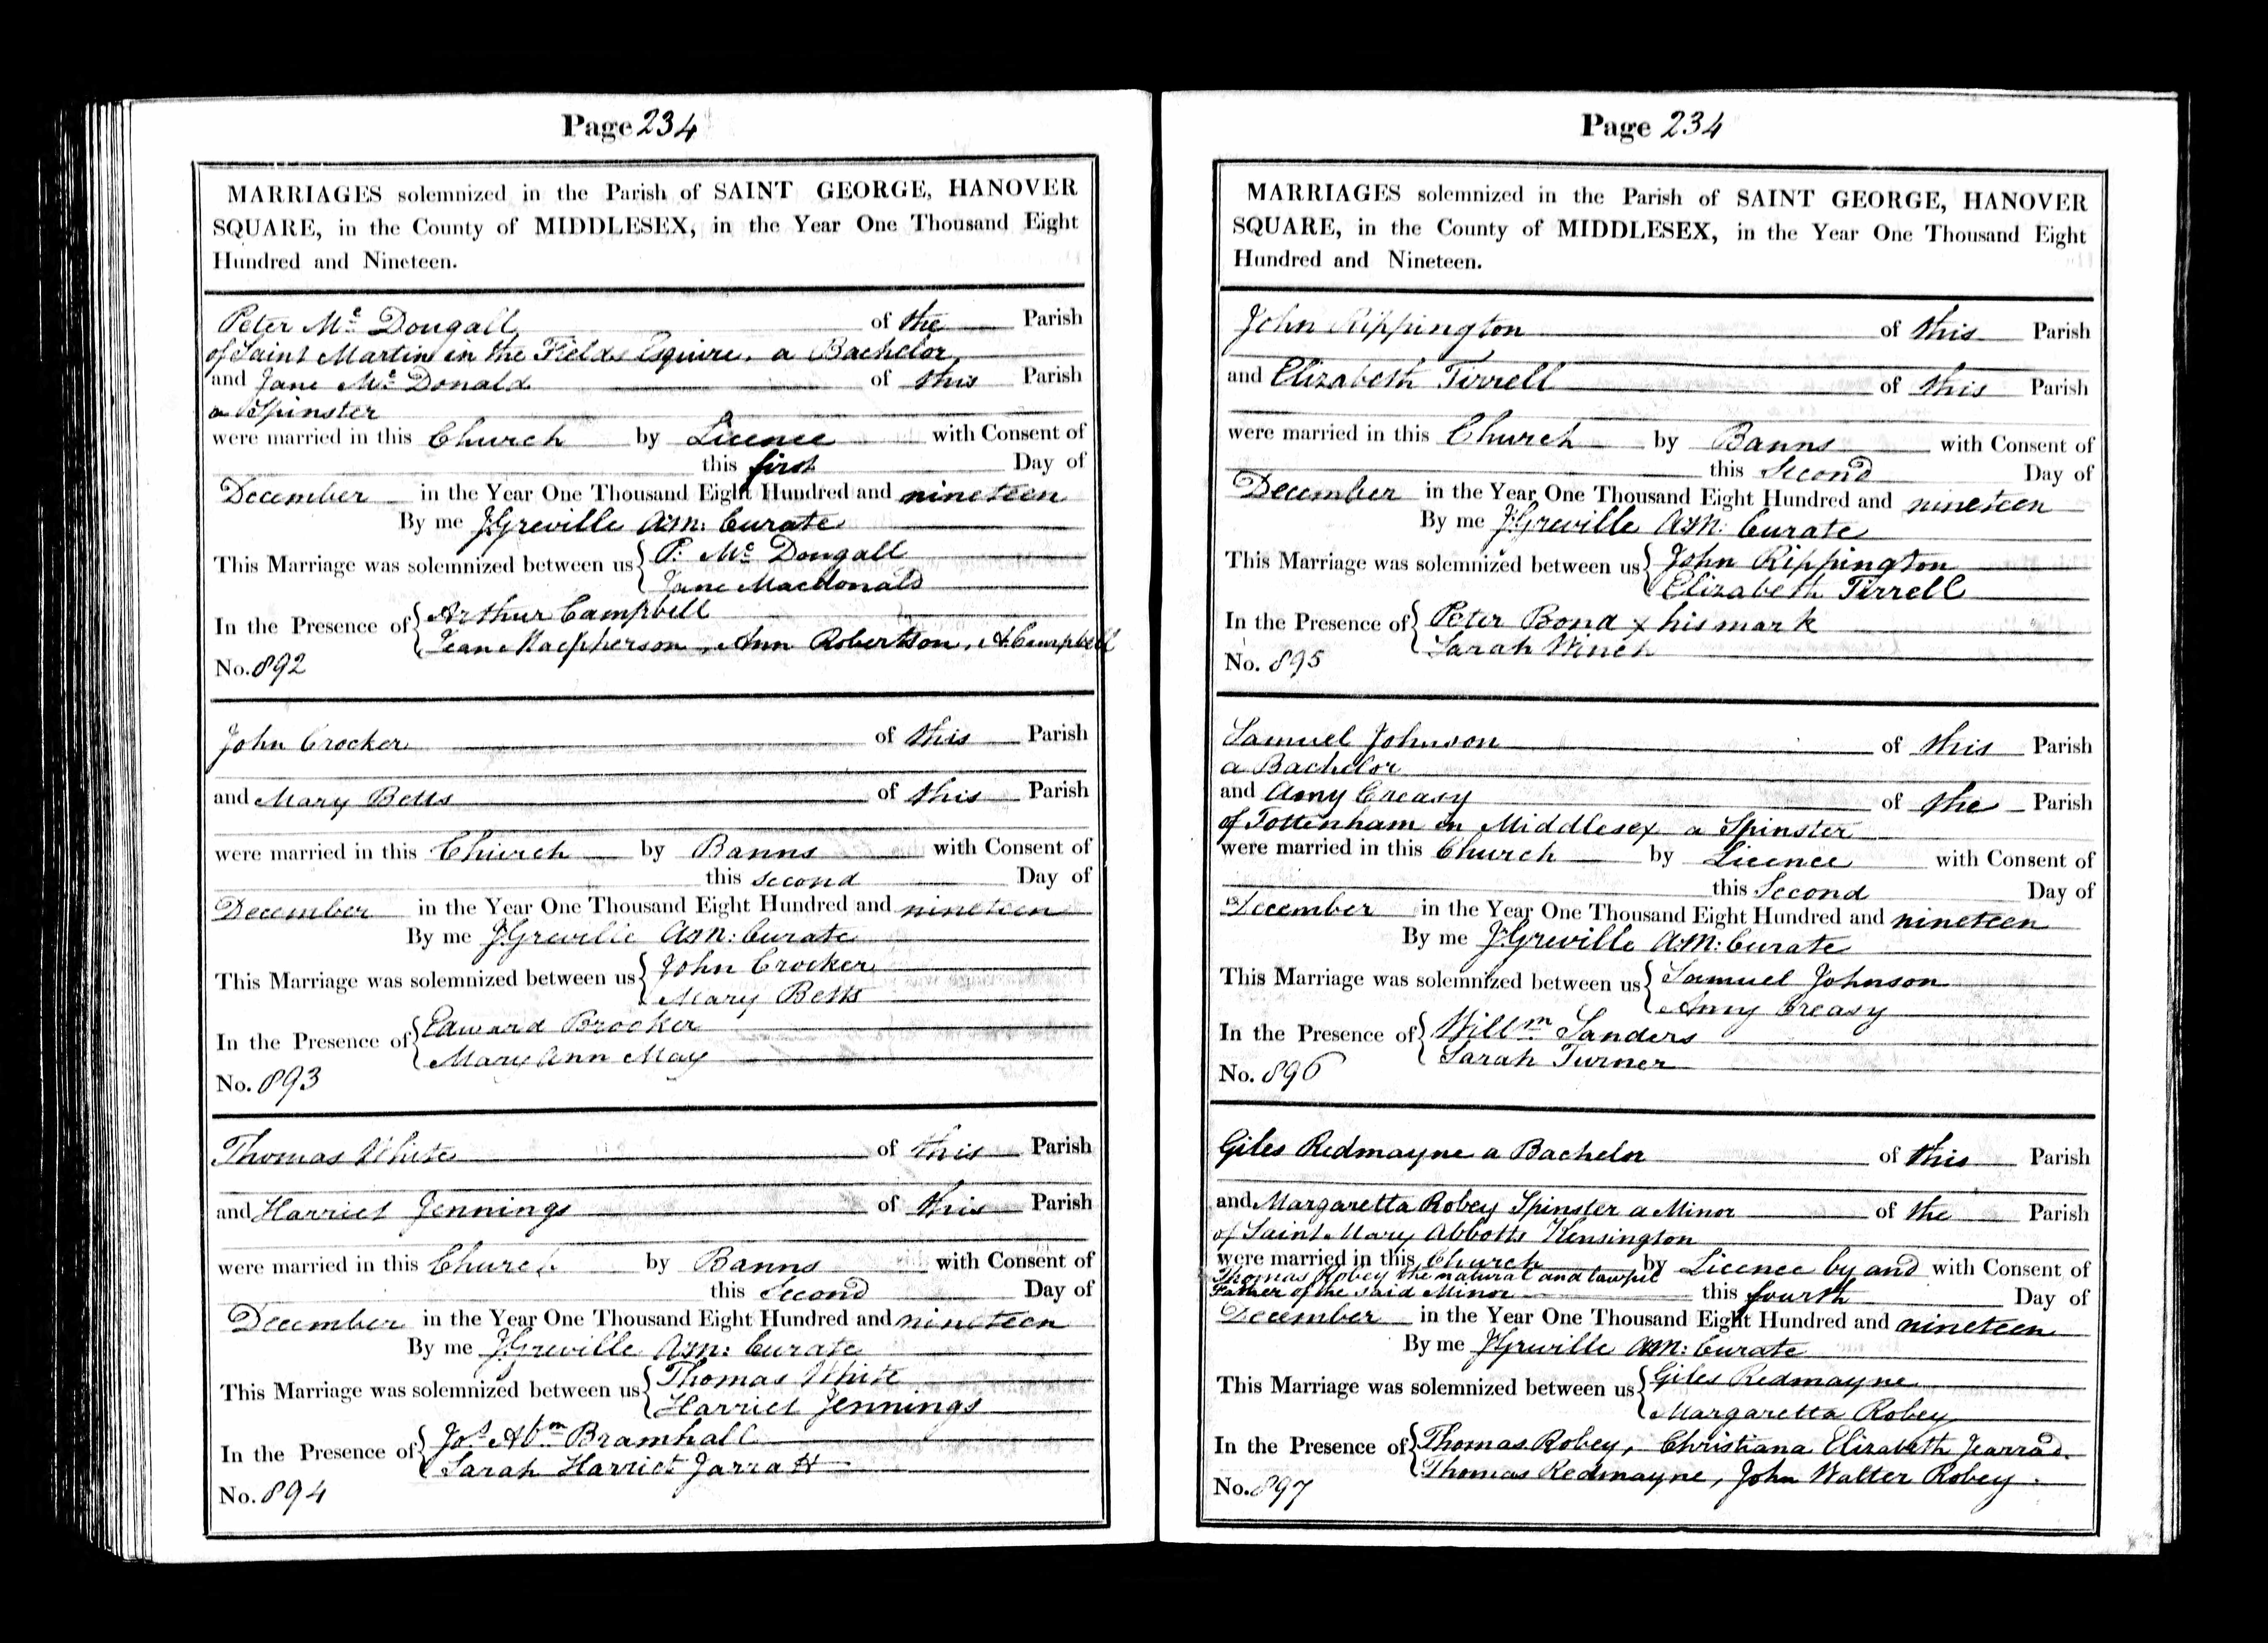 Page 234
MARRIAGES solemnized in the Parish of SAINT GEORGE, HANOVER
SQUARE, in the County of MIDDLESEX, in the Year One Thousand Eight
Hundred and Nineteen.
Peter Mc Dougall of the Parish
of Saint Martin in the Fields Esquire, a Bachelor,
and Jane Mc Donald of this Parish
a Spinster
were married in this Church by Licence with Consent of
this first Day of
December in the Year One Thousand Eight Hundred and nineteen
By me J Greville A:M: Curate
This Marriage was solemnized between us { P. Mc Dougall
Jane Macdonald
In the Presence of { Arthur Campbell
Jean Macpherson, Ann Robertson, A Campbell
No. 892
John Crocker of this Parish
and Mary Betts of this Parish
were married in this Church by Banns with Consent of
this second Day of
December in the Year One Thousand Eight Hundred and nineteen
By me J Greville A:M: Curate
This Marriage was solemnized between us { John Crocker
Mary Betts
In the Presence of { Edward Brocker
Mary Ann May
No. 893
Thomas White of this Parish
and Harriet Jennings of this Parish
were married in this Church by Banns with Consent of
this Second Day of
December in the Year One Thousand Eight Hundred and nineteen
By me J Greville A:M: Curate
This Marriage was solemnized between us { Thomas White
Harriet Jennings
In the Presence of { Jos. Abm Bramhall
Sarah Harriet Jarratt
No. 894
Page 234
MARRIAGES solemnized in the Parish of SAINT GEORGE, HANOVER
SQUARE, in the County of MIDDLESEX, in the Year One Thousand Eight
Hundred and Nineteen.
John Rippington of this Parish
and Elizabeth Tirrell of this Parish
were married in this Church by Banns with Consent of
this Second Day of
December in the Year One Thousand Eight Hundred and nineteen
By me J Greville A:M: Curate
This Marriage was solemnized between us { John Rippington
Elizabeth Tirrell
In the Presence of { Peter Bond x his mark
Sarah Winch
No. 895
Samuel Johnson of this Parish
a Bachelor
and Amy Creasy of the Parish
of Tottenham in Middlesex a Spinster
were married in this Church by Licence with Consent of
this Second Day of
December in the Year One Thousand Eight Hundred and nineteen
By me J Greville A:M: Curate
This Marriage was solemnized between us { Samuel Johnson
Amy Creasy
In the Presence of { Willm Sanders
Sarah Turner
No. 896
Giles Redmayne a Bachelor of this Parish
and Margaretta Robey Spinster a Minor of the Parish
of Saint Mary Abbotts Kensington
were married in this Church by Licence by and with Consent of
Thomas Robey the natural and lawful
Father of the said Minor this fourth Day of
December in the Year One Thousand Eight Hundred and nineteen
By me J Greville A:M: Curate
This Marriage was solemnized between us { Giles Redmayne
Margaretta Robey
In the Presence of { Thomas Robey, Christiana Elizabeth Jearrad.
Thomas Redmayne, John Walter Robey.
No. 897